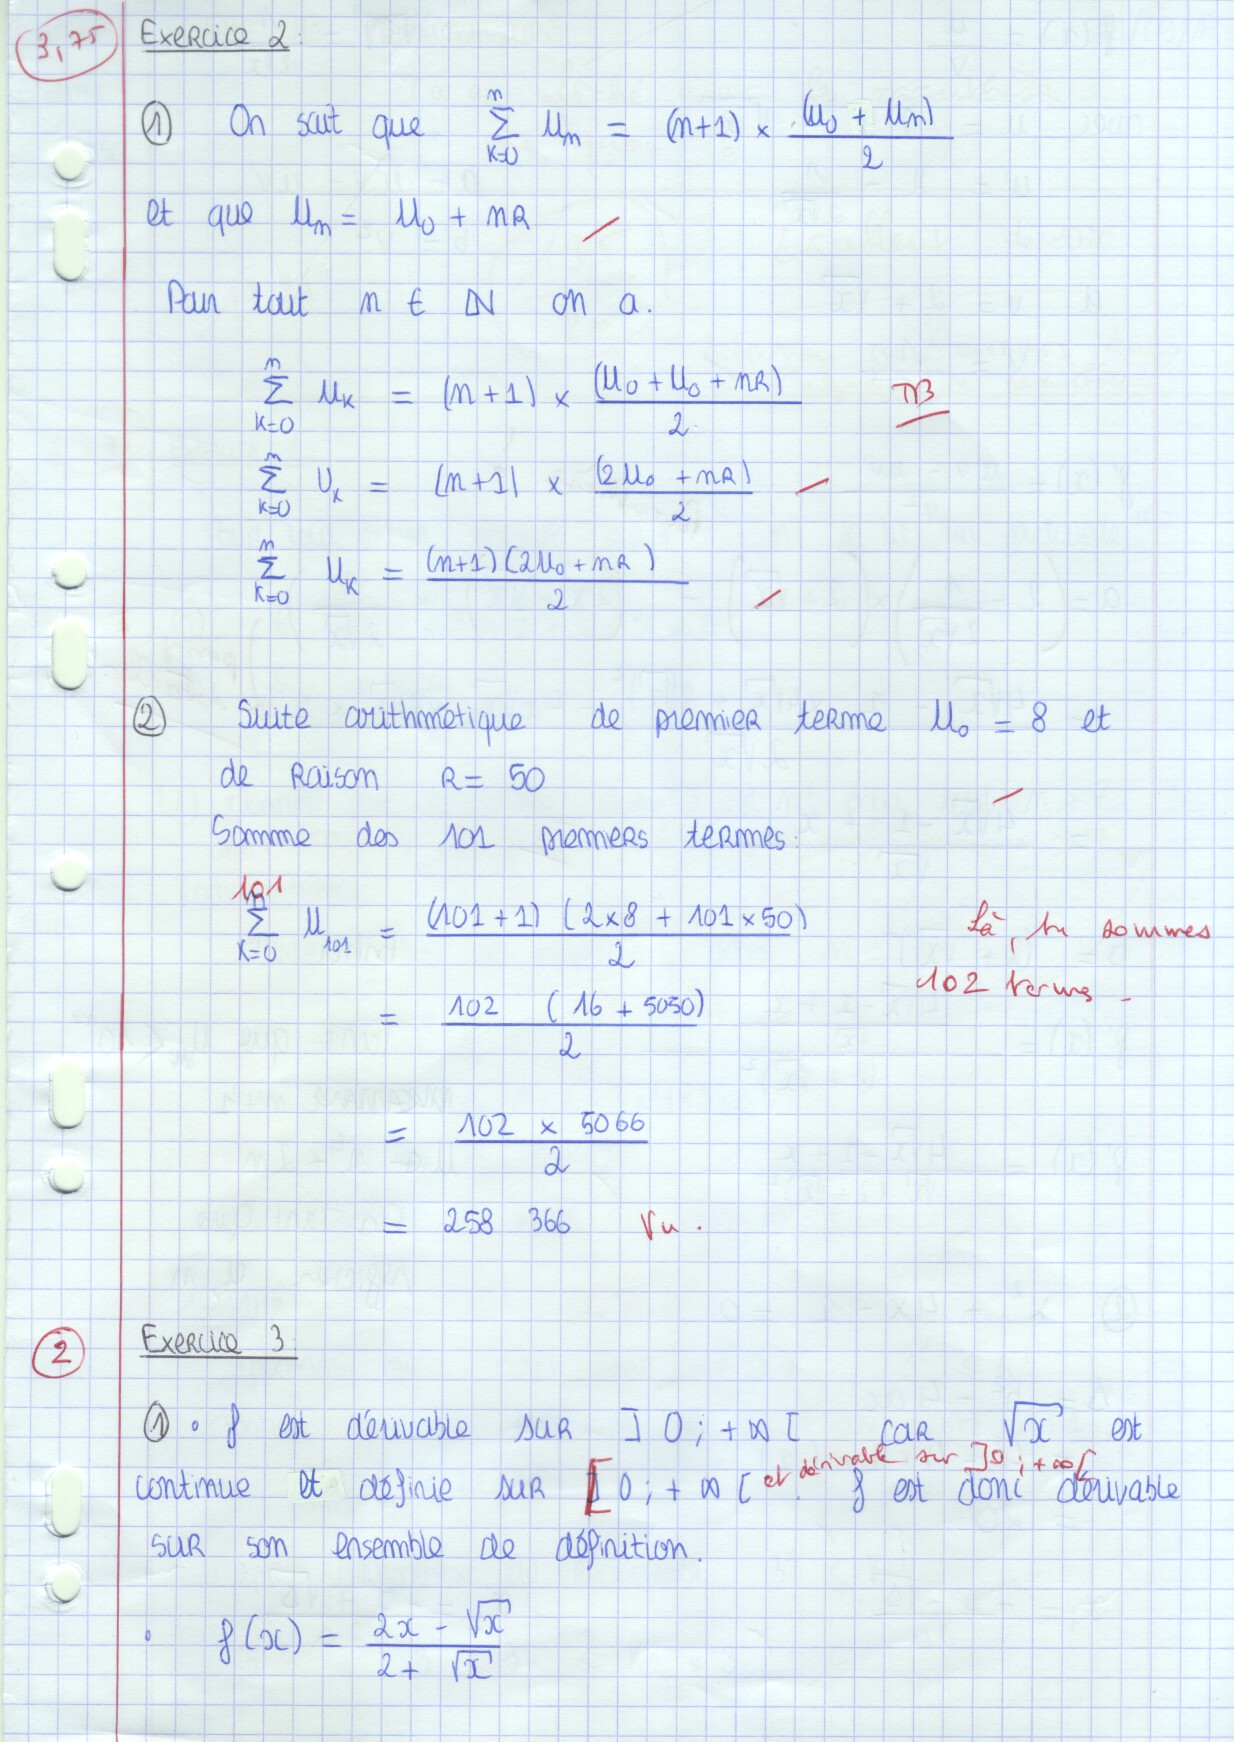 3,75
Exercice 2:
① On sait que \sum_{k=0}^{n} u_n = (n+1) × \frac{(u_0 + u_n)}{2}
et que u_n = u_0 + nR
Pour tout n ∈ ℕ on a.
\sum_{k=0}^{n} u_k = (n+1) × \frac{(u_0 + u_0 + nR)}{2} TB
\sum_{k=0}^{n} U_k = (n+1) × \frac{(2u_0 + nR)}{2}
\sum_{k=0}^{n} u_k = \frac{(n+1)(2u_0 + nR)}{2}
② Suite arithmétique de premier terme u_0 = 8 et
de raison R = 50
Somme des 101 premiers termes:
\sum_{k=0}^{101} u_{101} = \frac{(101+1) (2×8 + 101×50)}{2} Là, tu sommes
102 termes.
= \frac{102 (16 + 5050)}{2}
= \frac{102 × 5066}{2}
= 258 366 Vu.
2 Exercice 3:
① • f est dérivable sur ]0 ; +∞[ car √x est
et dérivable sur ]0 ; +∞[
continue et définie sur [0 ; +∞[. f est donc dérivable
sur son ensemble de définition.
• f(x) = \frac{2x - √x}{2 + √x}